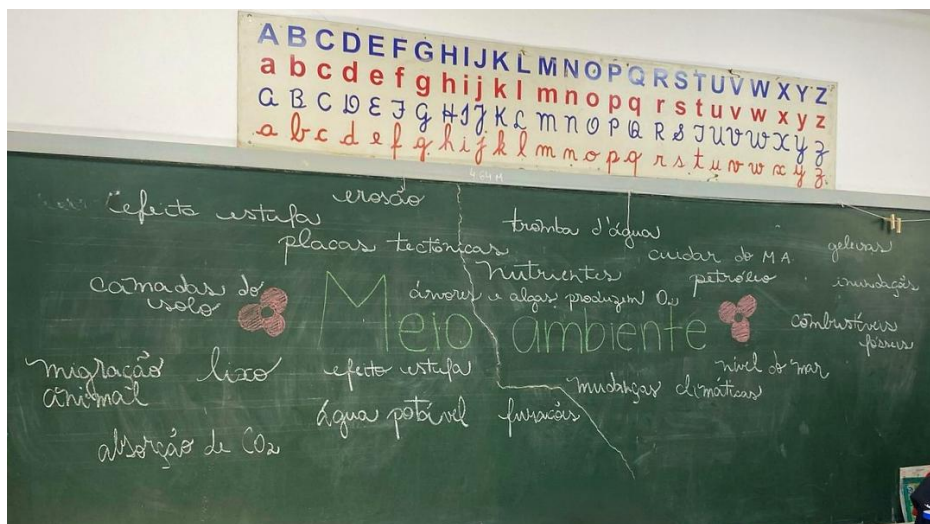 A B C D E F G H I J K L M N O P Q R S T U V W X Y Z
a b c d e f g h i j k l m n o p q r s t u v w x y z
A B C D E F G H I J K L M N O P Q R S T U V W X Y Z
a b c d e f g h i j k l m n o p q r s t u v w x y z
erosão
efeito estufa
tromba d'água
placas tectônicas
cuidar do M.A.
geleiras
Nutrientes
petróleo
camadas do
solo
árvores e algas produzem O2
inundações
Meio ambiente
combustíveis
fósseis
migração
animal
lixo
efeito estufa
nível do mar
mudanças climáticas
água potável
furacões
absorção de CO2